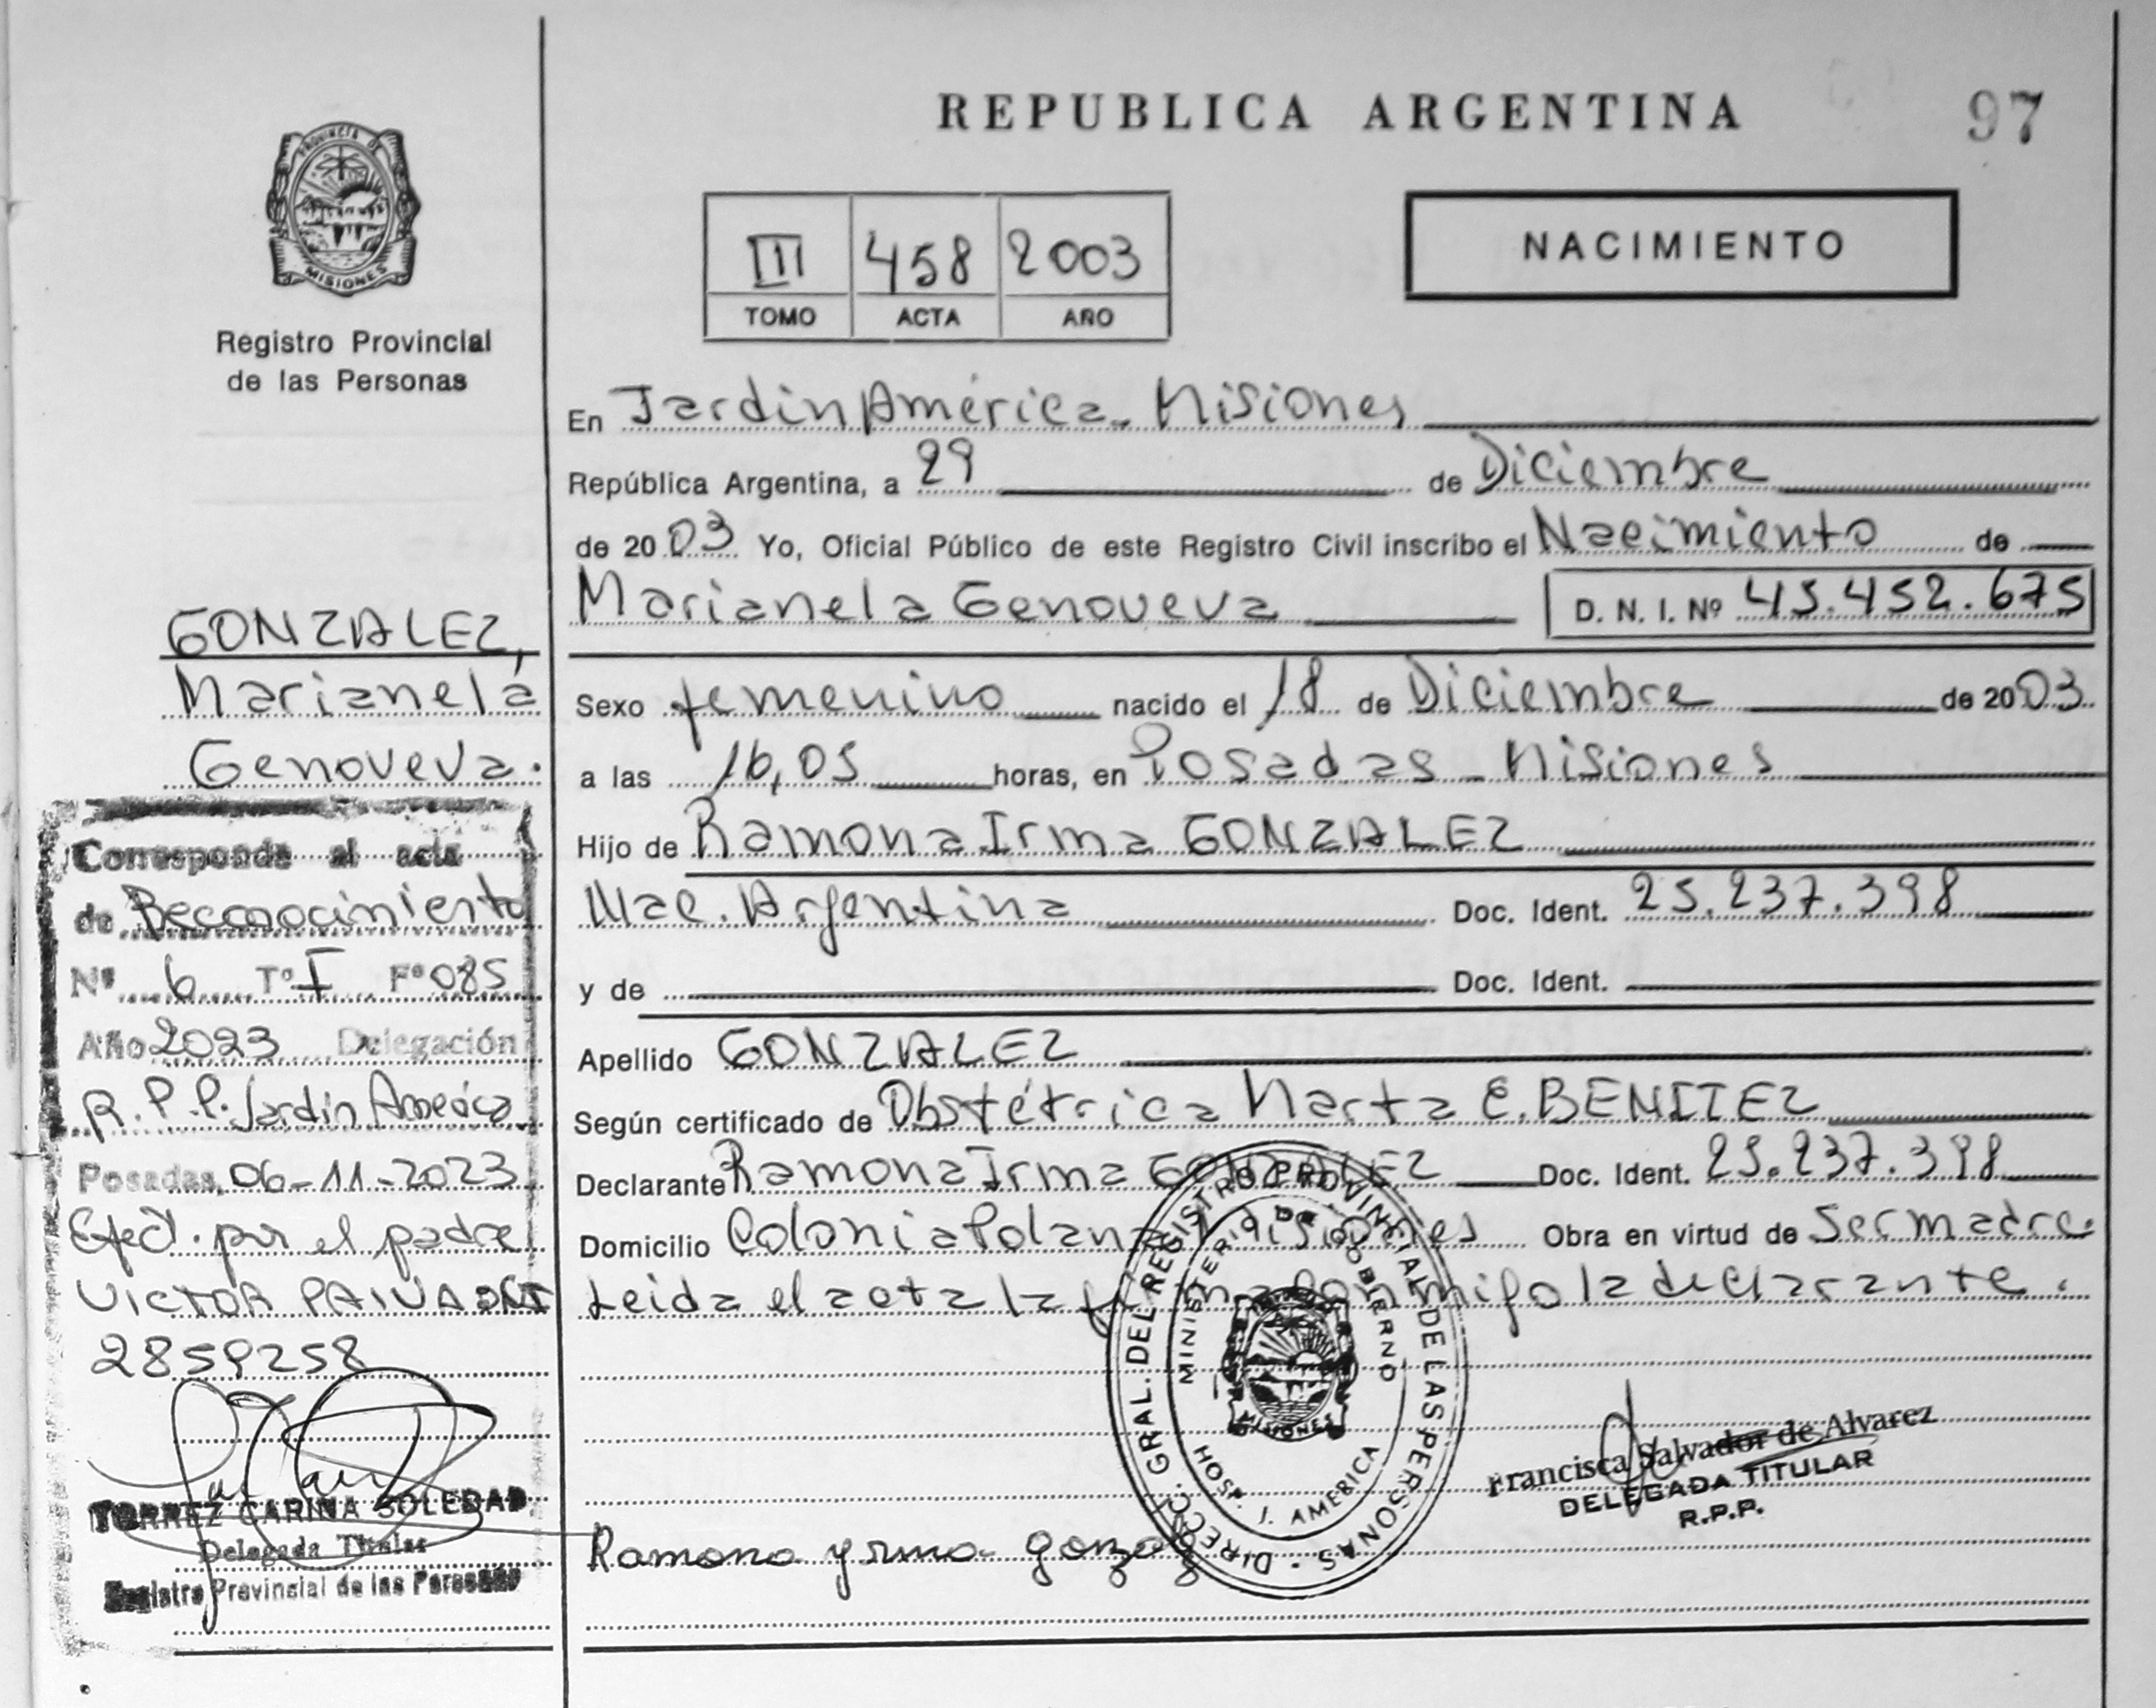 REPUBLICA ARGENTINA
97
PROVINCIA DE
MISIONES
Registro Provincial
de las Personas
III 458 2003
TOMO ACTA AÑO
NACIMIENTO
En Jardin América - Misiones
República Argentina, a 29 de Diciembre
de 2003 Yo, Oficial Público de este Registro Civil inscribo el Nacimiento de
Marianela Genoveva D. N. I. Nº 45.452.675
Sexo femenino nacido el 18 de Diciembre de 2003
a las 16,05 horas, en Posadas - Misiones
Hijo de Ramona Irma GONZALEZ
Nac. Argentina Doc. Ident. 25.237.398
y de Doc. Ident.
Apellido GONZALEZ
Según certificado de Obstétrica Marta E. BENITEZ
Declarante Ramona Irma GONZALEZ Doc. Ident. 25.237.398
Domicilio Colonia Polana Misiones Obra en virtud de Ser madre.
Leida el acta la firma conmigo la declarante.
GONZALEZ,
Marianela
Genoveva.
Corresponde al acta
de Reconocimiento
Nº 6 Tº I Fº 085
Año 2023 Delegación
R.P.P. Jardin América
Posadas, 06-11-2023
Efect. por el padre
VICTOR PAIVA DNI
2859258
TORREZ CARINA SOLEDAD
Delegada Titular
Registro Provincial de las Personas
DIRECC. GRAL. DEL REGISTRO PROVINCIAL DE LAS PERSONAS
MINISTERIO DE GOBIERNO
HOSP. J. AMERICA
MISIONES
Ramona yrma gonzalez
Francisca Salvador de Alvarez
DELEGADA TITULAR
R.P.P.